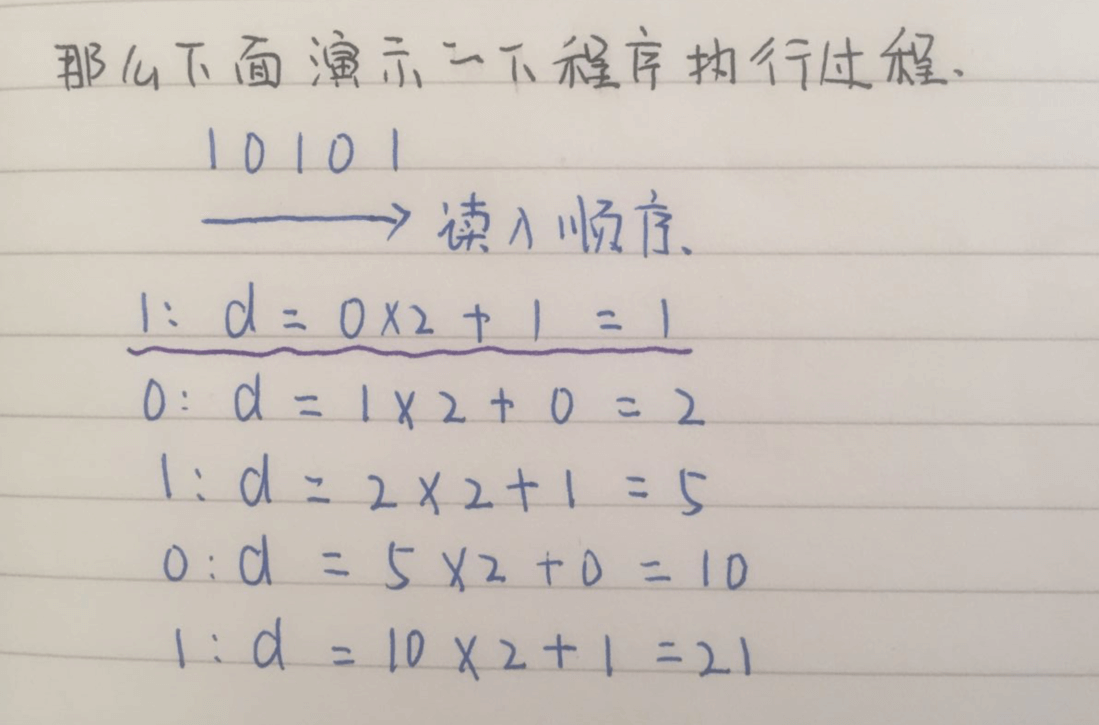 那么下面演示一下程序执行过程.
10101
读入顺序.
1: d = 0×2 + 1 = 1
0: d = 1×2 + 0 = 2
1: d = 2×2+1 = 5
0: d = 5×2+0 = 10
1: d = 10×2+1 =21